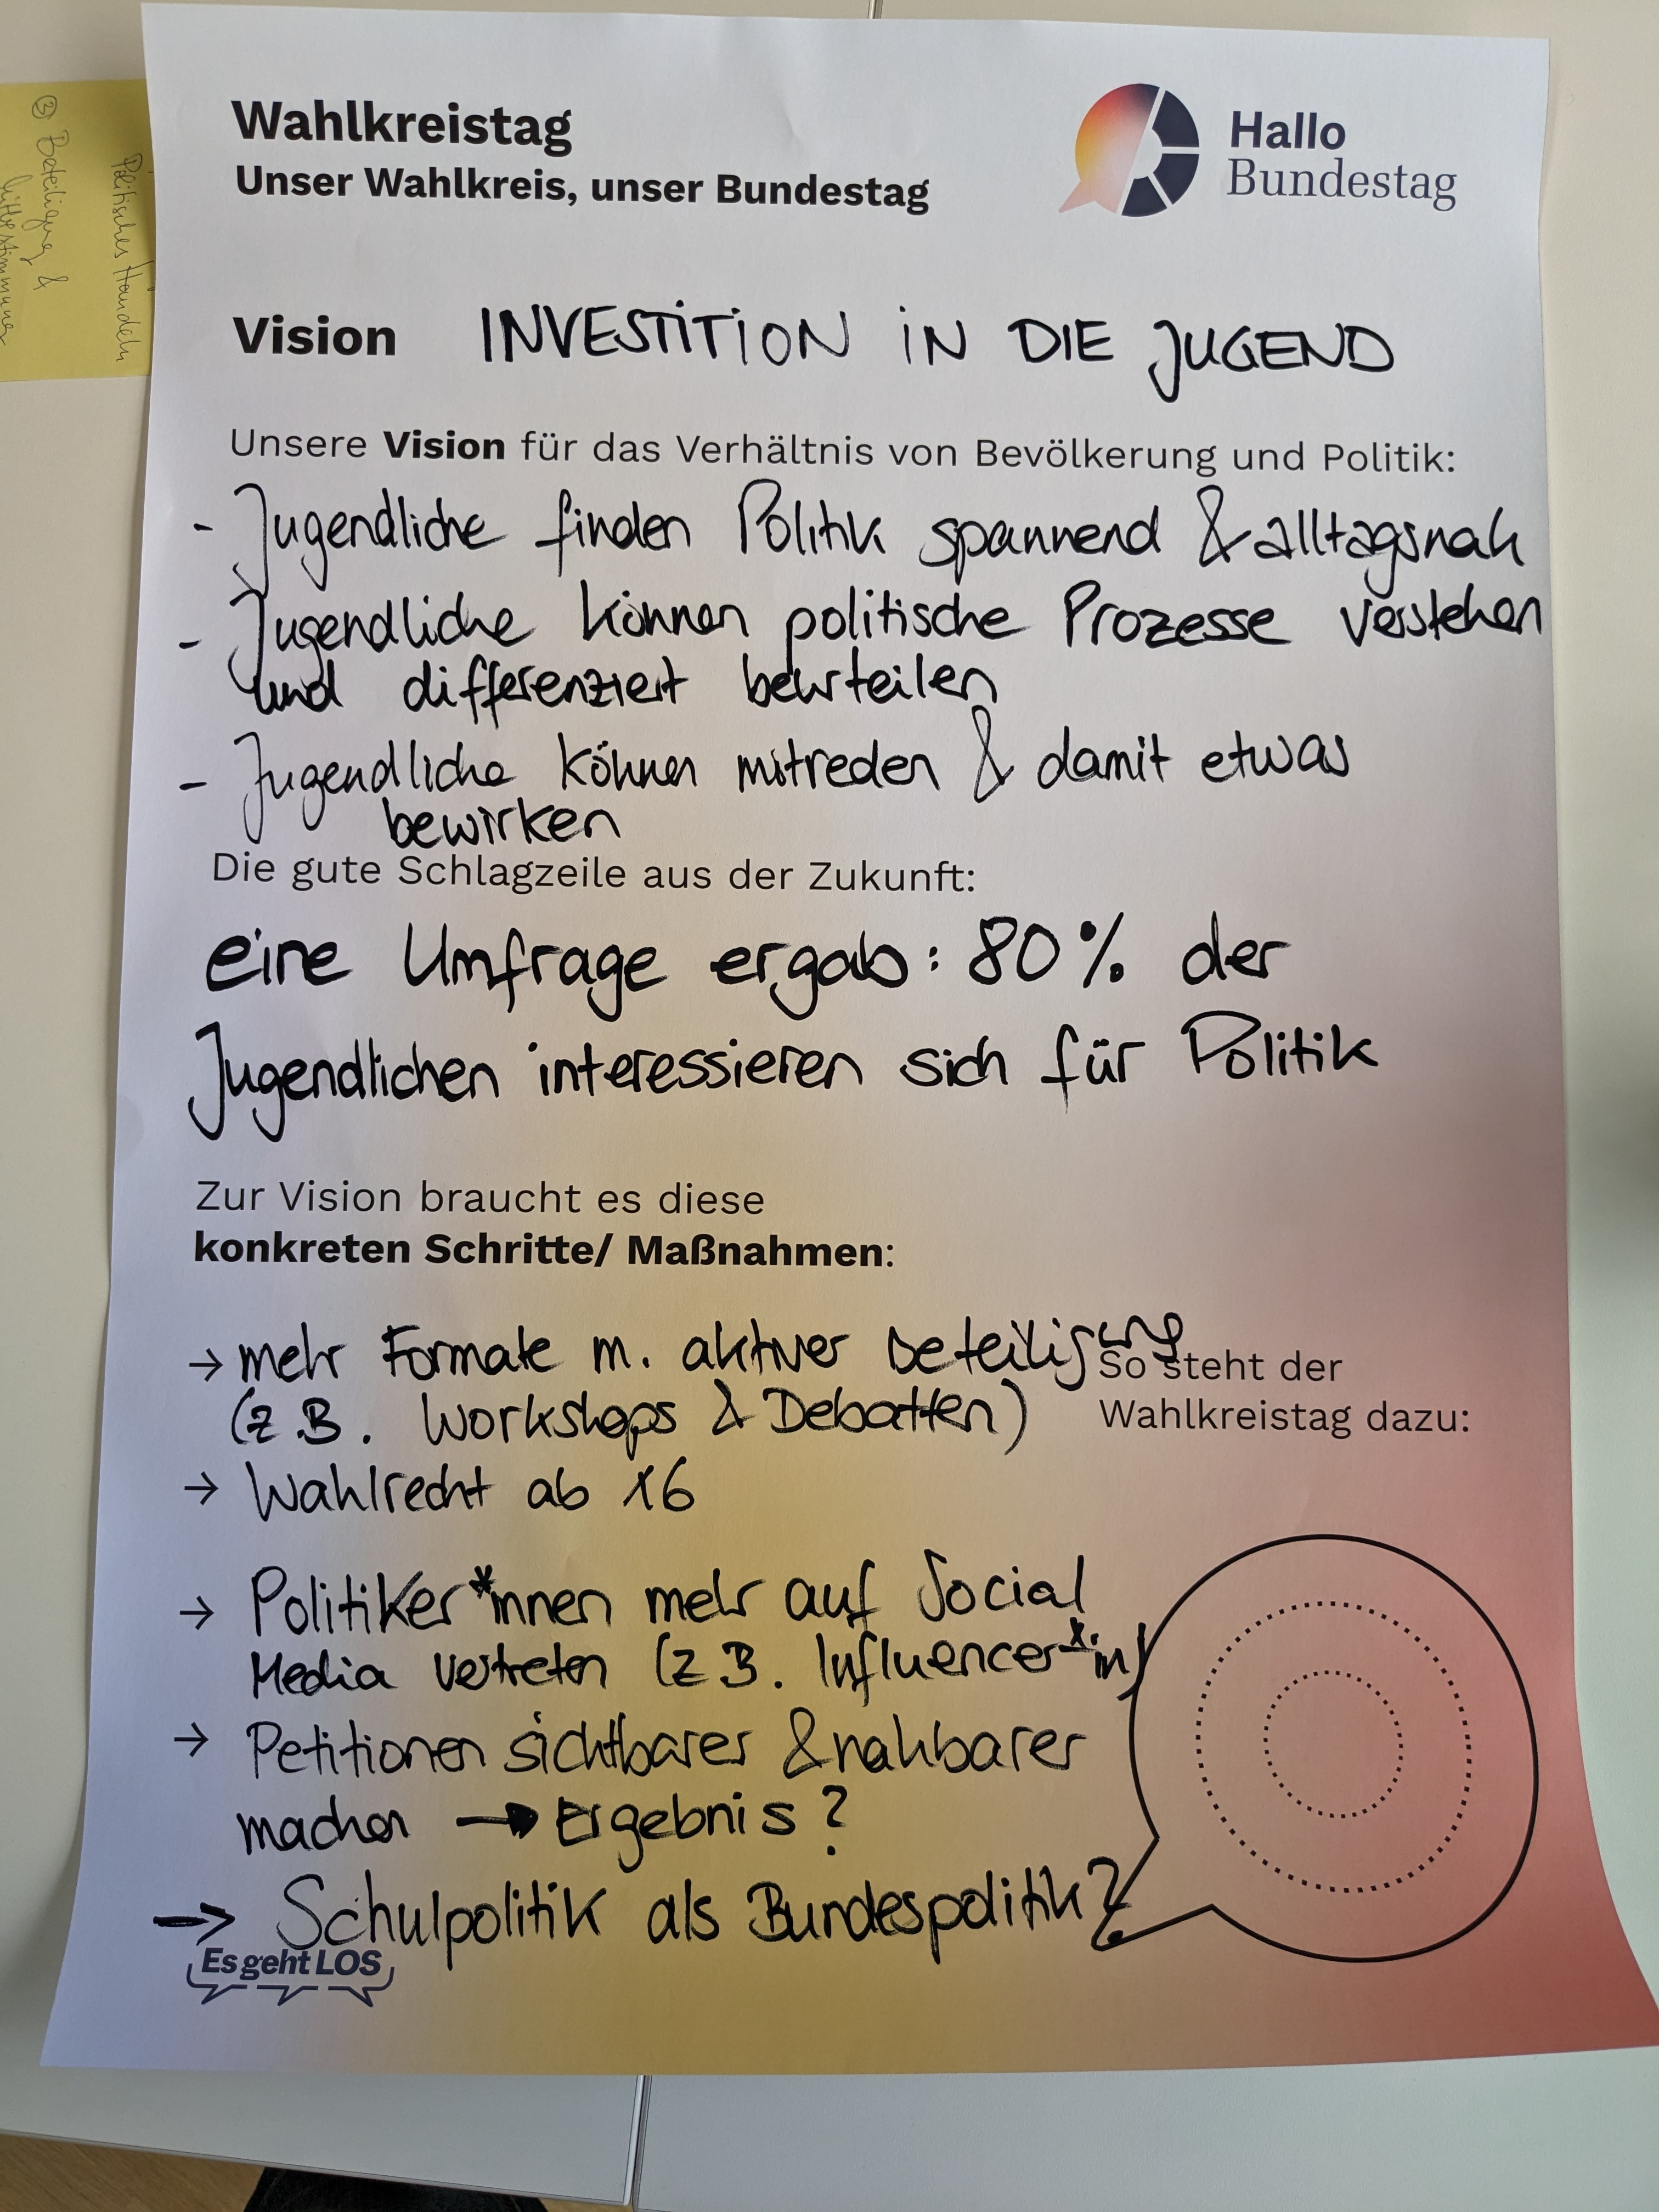 Wahlkreistag
Unser Wahlkreis, unser Bundestag
Hallo
Bundestag
Politisches Handeln
③ Beteiligung &
Mitbestimmung
Vision INVESTITION IN DIE JUGEND
Unsere Vision für das Verhältnis von Bevölkerung und Politik:
- Jugendliche finden Politik spannend & alltagsnah
- Jugendliche können politische Prozesse verstehen
und differenziert beurteilen
- Jugendliche können mitreden & damit etwas
bewirken
Die gute Schlagzeile aus der Zukunft:
eine Umfrage ergab: 80% der
Jugendlichen interessieren sich für Politik
Zur Vision braucht es diese
konkreten Schritte/ Maßnahmen:
→ mehr Formate m. aktiver Beteiligung
(z.B. Workshops & Debatten)
→ Wahlrecht ab 16
→ Politiker*innen mehr auf Social
Media vertreten (z.B. Influencer*in)
→ Petitionen sichtbarer & nahbarer
machen → Ergebnis?
→ Schulpolitik als Bundespolitik?
So steht der
Wahlkreistag dazu:
Es geht LOS